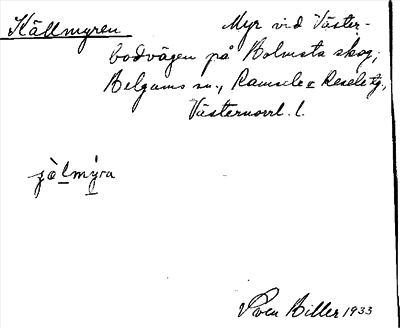 Källmyren Myr vid Väster-
bodvägen på Bolmsta skog,
Helgums sn., Ramsele o Resele tg.,
Västernorrl. l.
jȧ̀lmýra
Sven Biller 1933